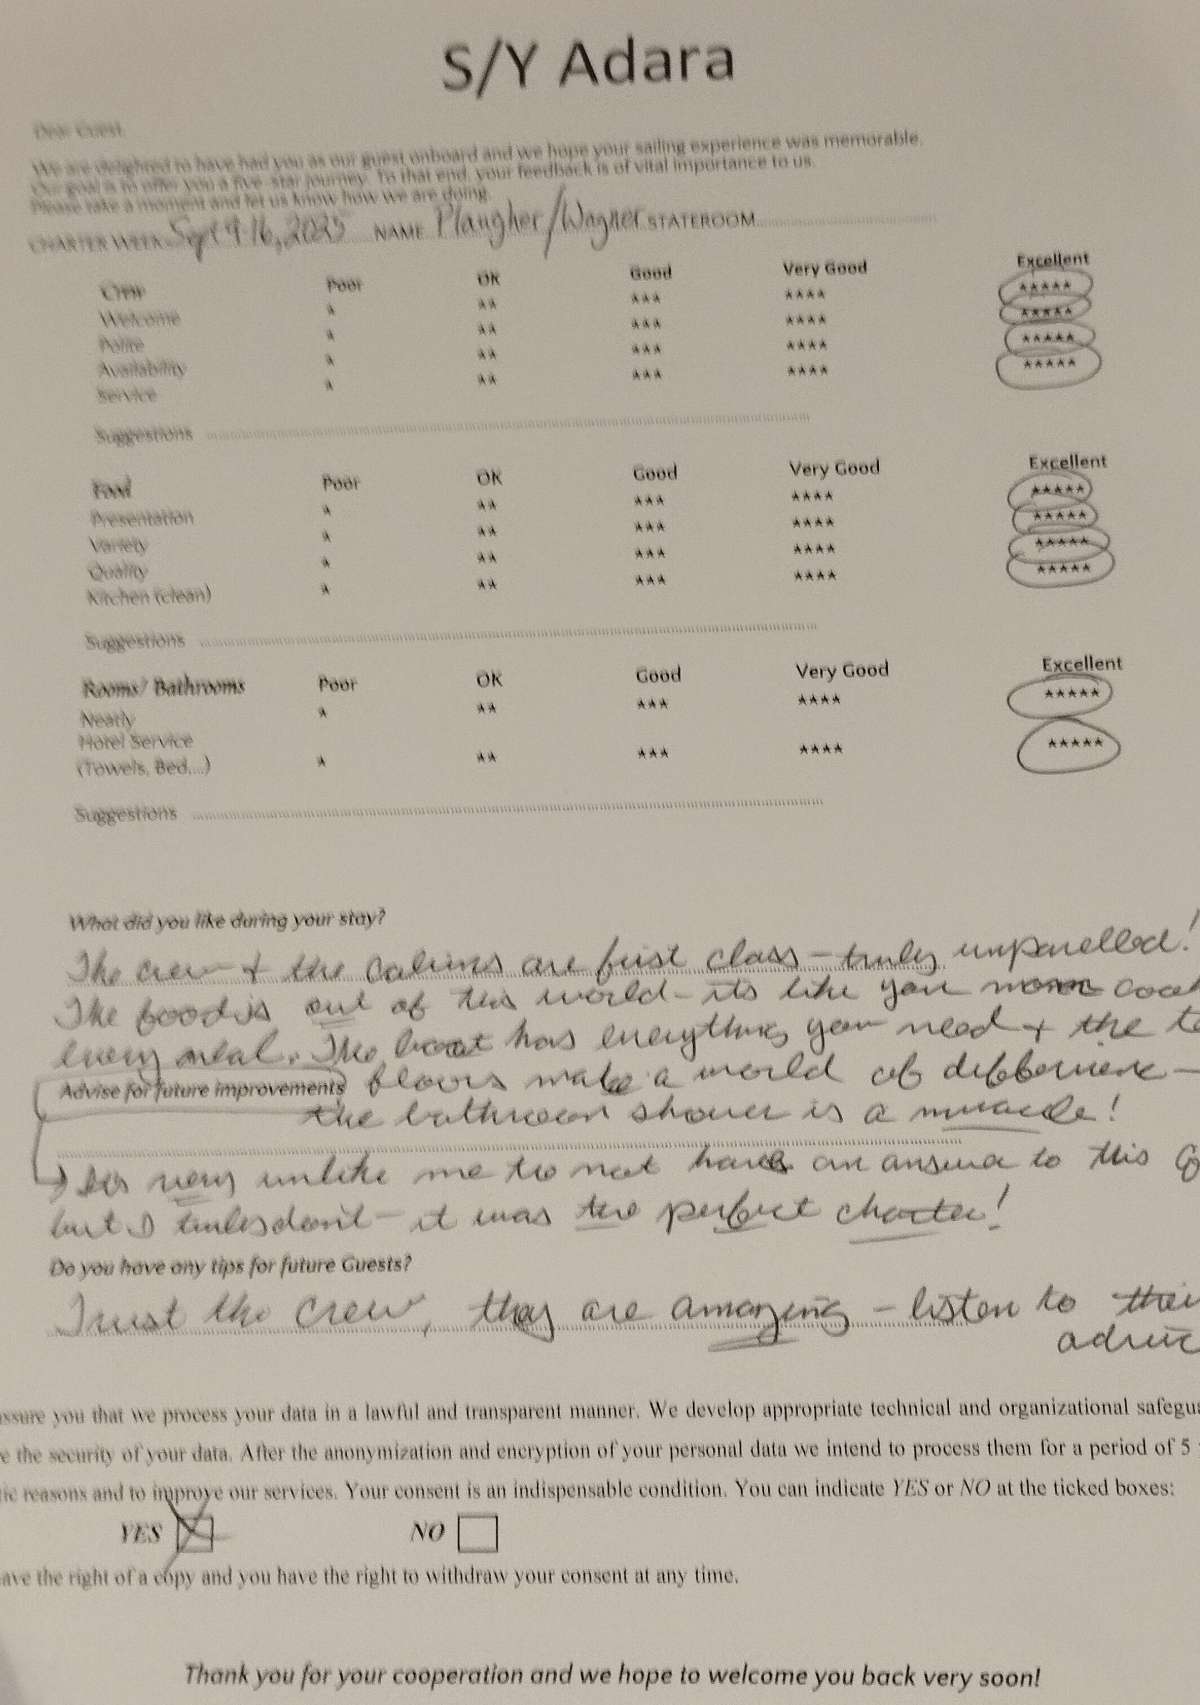 S/Y Adara
Dear Guest,
We are delighted to have had you as our guest onboard and we hope your sailing experience was memorable.
Our goal is to offer you a five-star journey. To that end, your feedback is of vital importance to us.
Please take a moment and let us know how we are doing.
CHARTER WEEK Sept 9-16, 2025 NAME Plaugher/Wagner STATEROOM
Crew Poor OK Good Very Good Excellent
Welcome * ** *** **** *****
Polite * ** *** **** *****
Availability * ** *** **** *****
Service * ** *** **** *****
Suggestions
Food Poor OK Good Very Good Excellent
Presentation * ** *** **** *****
Variety * ** *** **** *****
Quality * ** *** **** *****
Kitchen (clean) * ** *** **** *****
Suggestions
Rooms/ Bathrooms Poor OK Good Very Good Excellent
Neatly * ** *** **** *****
Hotel Service
(Towels, Bed,...) * ** *** **** *****
Suggestions
What did you like during your stay?
The crew + the cabins are first class - truly unparelled!
The food is out of this world - its like your mom
every meal. The boat has everything you need + the
Advise for future improvements floors make a world of difference -
the bathroom shower is a miracle!
Its very unlike me to not have an answer to this
but I truly don't - it was the perfect charter!
Do you have any tips for future Guests?
Trust the crew, they are amazing - listen to their
assure you that we process your data in a lawful and transparent manner. We develop appropriate technical and organizational
the security of your data. After the anonymization and encryption of your personal data we intend to process them for a period of 5
reasons and to improve our services. Your consent is an indispensable condition. You can indicate YES or NO at the ticked boxes:
YES NO
have the right of a copy and you have the right to withdraw your consent at any time.
Thank you for your cooperation and we hope to welcome you back very soon!